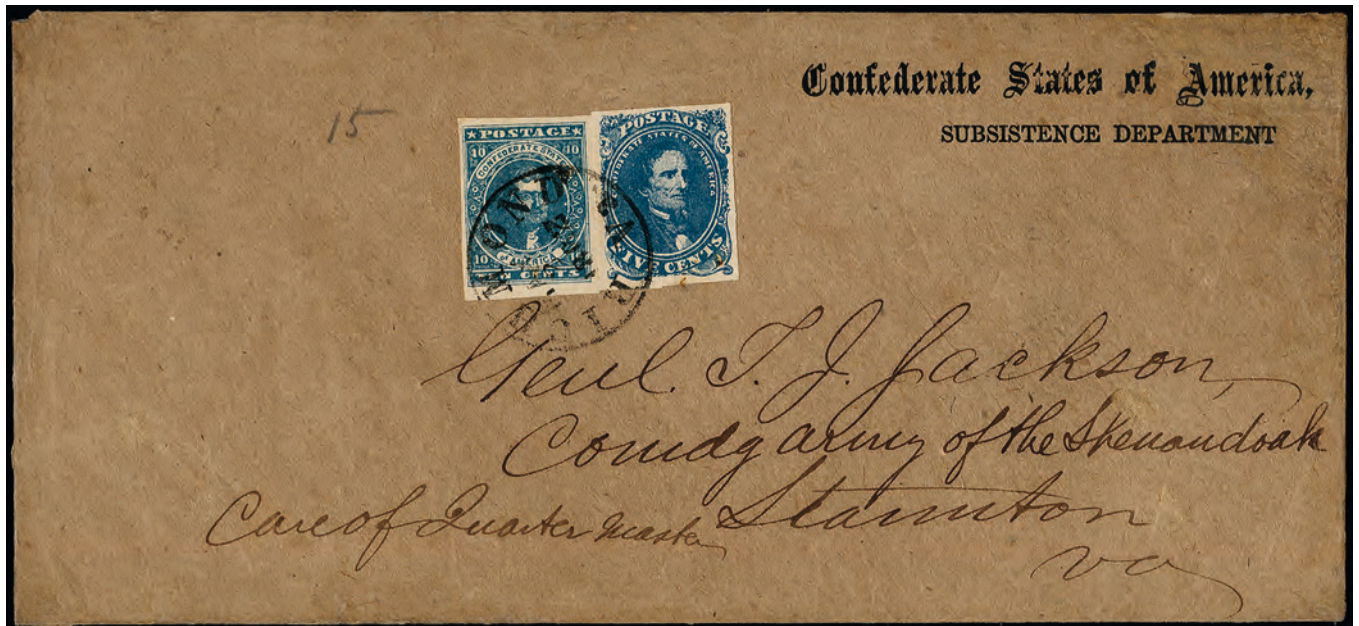 Confederate States of America,
SUBSISTENCE DEPARTMENT
15
★POSTAGE★
10 10
CONFEDERATE STATES
OF AMERICA
10
CENTS
POSTAGE
CONFEDERATE STATES OF AMERICA
FIVE CENTS
RICHMOND VA.
Genl. T. J. Jackson,
Comdg army of the Shenandoah
Care of Quarter Master Staunton
va